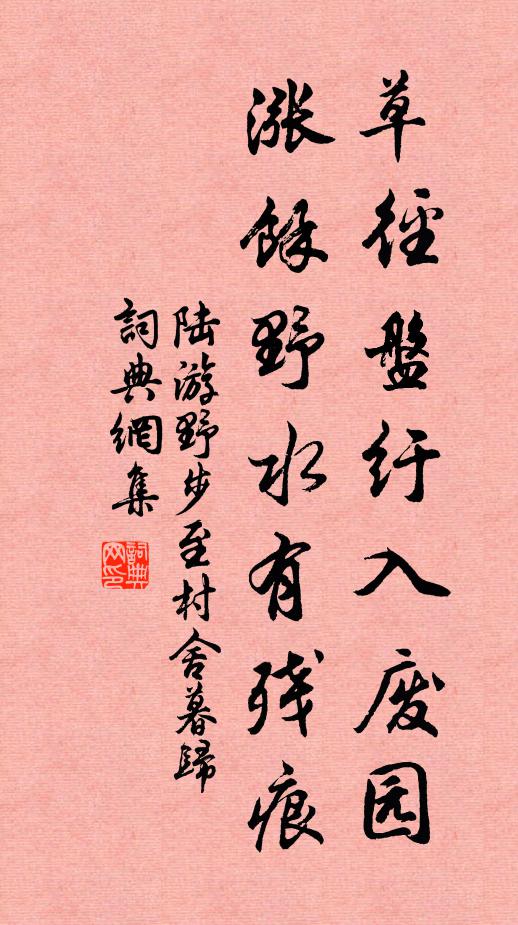 草径盤纡入废园
漲餘野水有残痕
陆游野步至村舍暮歸
詞典網集
詞典网印